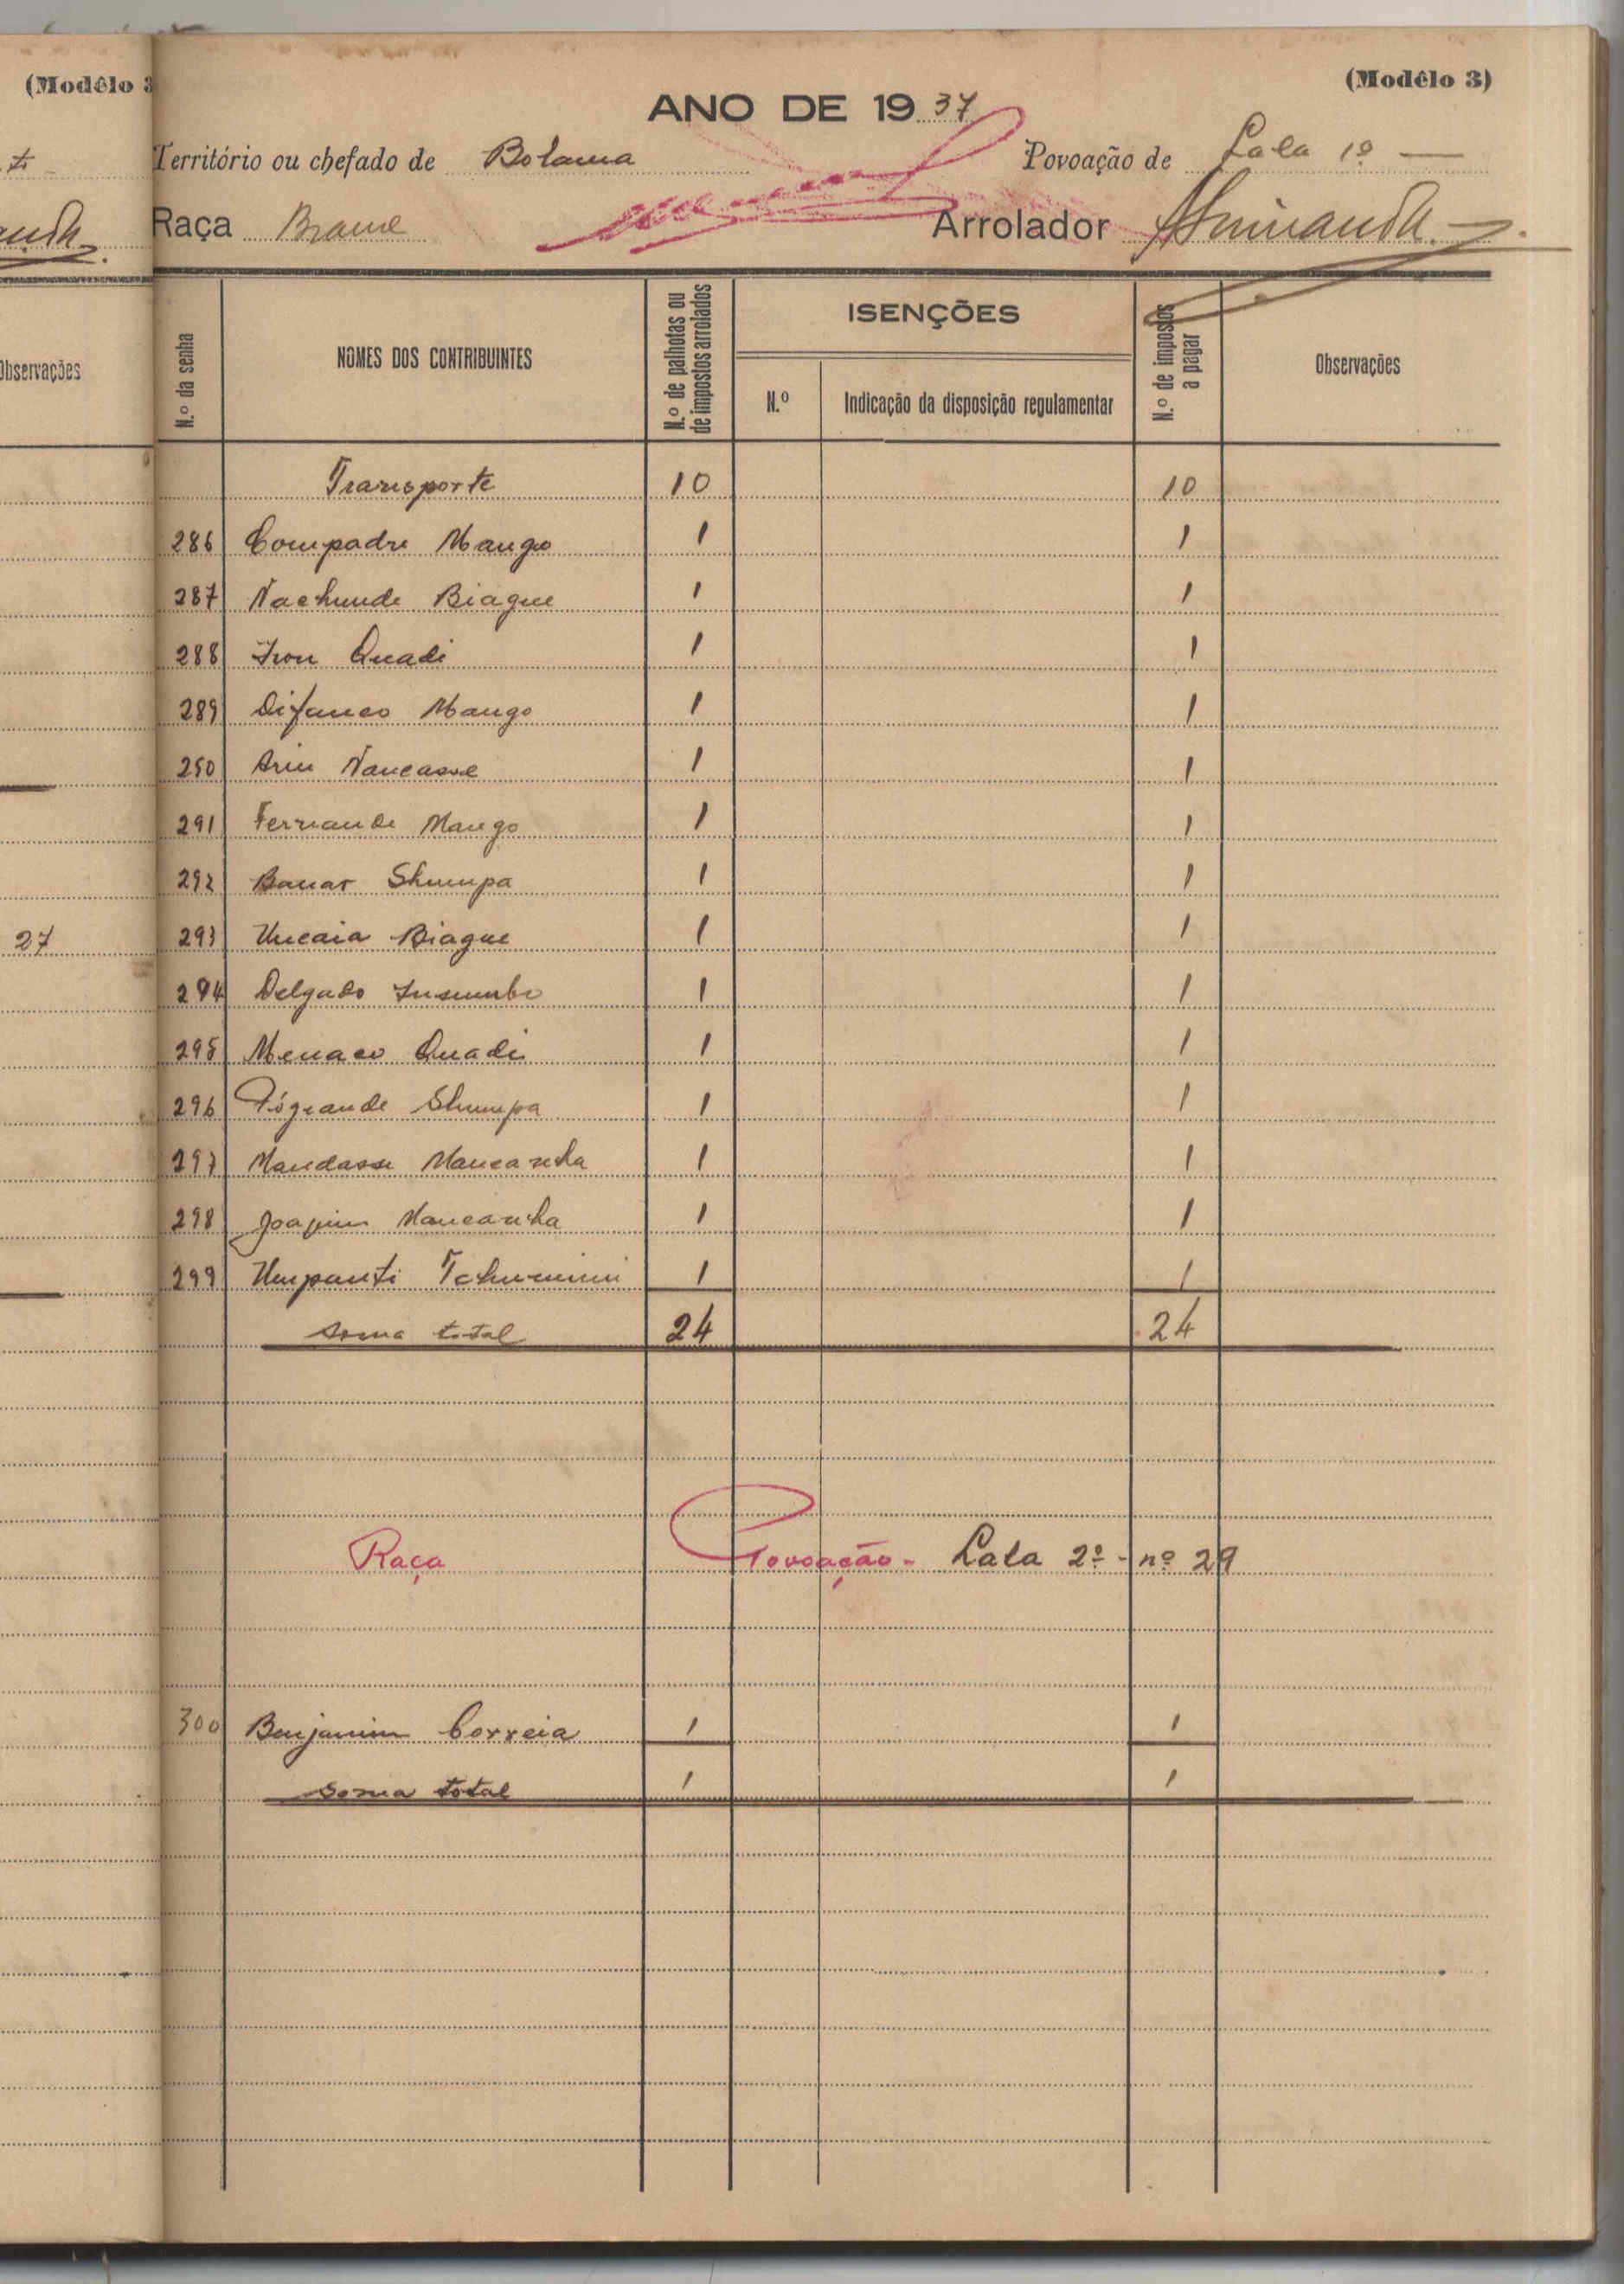 (Modêlo 3
Observações
27
(Modêlo 3)
ANO DE 1937
Território ou chefado de Bolama Povoação de Lala 1º
Raça Brame Arrolador
N.º da senha NOMES DOS CONTRIBUINTES N.º de palhotas ou de impostos arrolados ISENÇÕES N.º de impostos a pagar Observações
N.º Indicação da disposição regulamentar
Transporte 10 10
286 Compadre Mango 1 1
287 Nachunde Biague 1 1
288 Quadi 1 1
289 Difanco Mango 1 1
290 Nancasse 1 1
291 Fernande Mango 1 1
292 Banar Shumpa 1 1
293 Uncaia Biague 1 1
294 Delgado Insumbo 1 1
295 Menaco Quadi 1 1
296 Pógrande Shumpa 1 1
297 Mandasse Mancanha 1 1
298 Joaquim Mancanha 1 1
299 Umpanti 1 1
soma total 24 24
Raça Povoação - Lala 2º - nº 29
300 Benjamim Correia 1 1
soma total 1 1